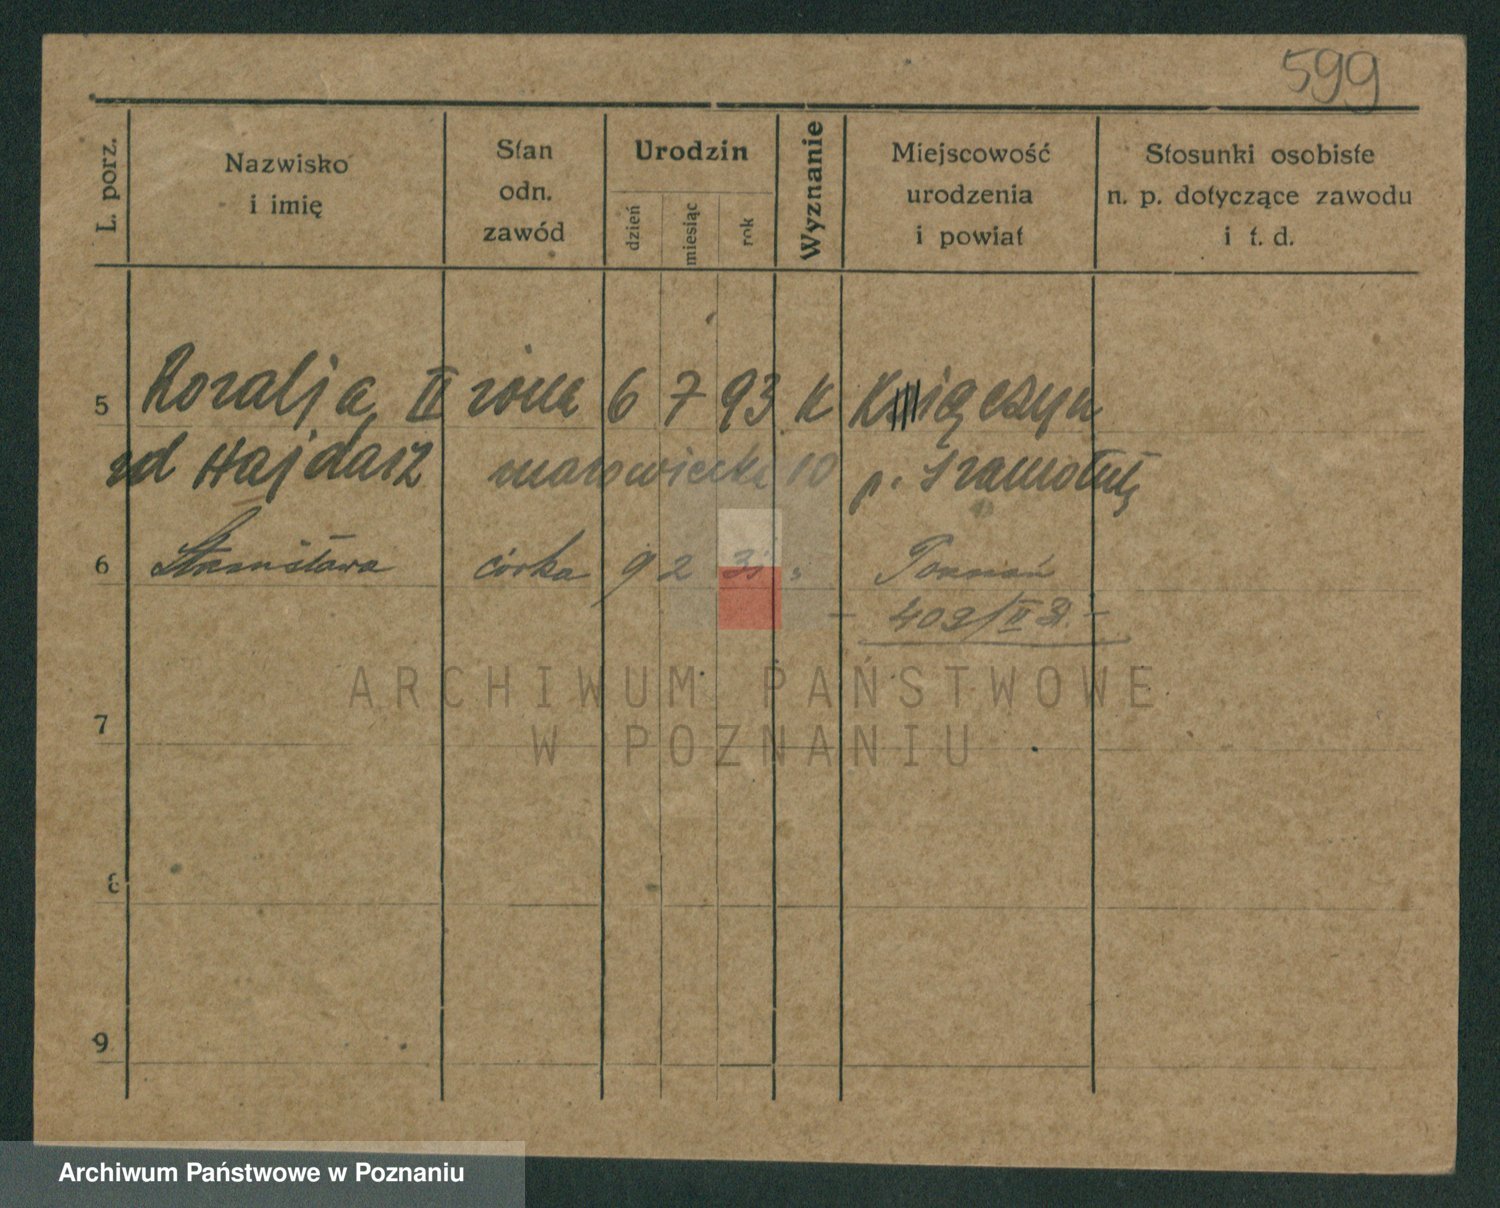 599
L. porz.
Nazwisko
i imię
Stan
odn.
zawód
Urodzin
dzień
miesiąc
rok
Wyznanie
Miejscowość
urodzenia
i powiat
Stosunki osobiste
n. p. dotyczące zawodu
i t. d.
5 Rozalja II żona 6 7 93 K
zd Hajdasz mazowiecka 10 p. Szamotuły
6 Stanisława córka 9 2 31 „ Poznań
- 409/II 31. -
ARCHIWUM PAŃSTWOWE
W POZNANIU
7
8
9
Archiwum Państwowe w Poznaniu